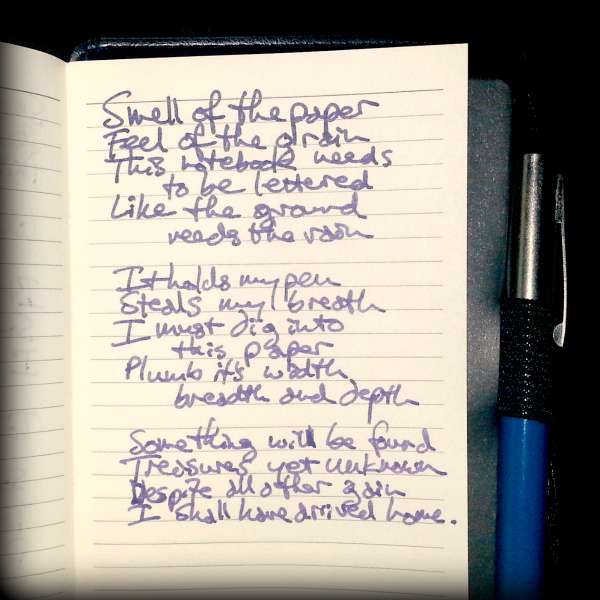 Smell of the paper
Feel of the grain
This notebook needs
to be lettered
Like the ground
needs the rain
It holds my pen
Steals my breath
I must dig into
this paper
Plumb it's width
breadth and depth
Something will be found
Treasures yet unknown
Despite all other gain
I shall have arrived home.